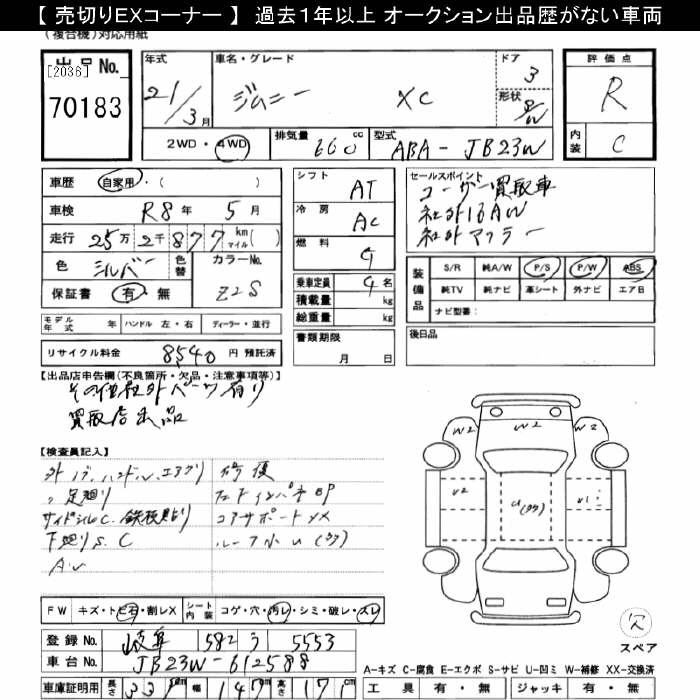 【 売切りEXコーナー 】 過去１年以上 オークション出品歴がない車両
(複合機) 対応用紙
出品No.
[2036]
70183
年式
21/3月
車名・グレード
ジムニー XC
ドア
3
形状
評価点
R
内装
C
2WD・4WD
排気量 660 cc
型式 ABA-JB23W
車歴 自家用・( )
車検 R8年 5月
走行 25万 2千 877 km マイル( )
色 シルバー 色替
カラーNo. Z2S
保証書 有・無
シフト AT
冷房 AC
燃料 G
乗車定員 4名
積載量 kg
総重量 kg
セールスポイント
ユーザー買取車
社外16AW
社外マフラー
装備品
S/R 純A/W P/S P/W ABS
純TV 純ナビ 革シート 外ナビ エアB
ナビ型番:
モデル年式 年 ハンドル 左・右 ディーラー・並行
リサイクル料金 8540 円 預託済
書類期限
月 日
後日品
【出品店申告欄(不良箇所・欠品・注意事項等)】
その他社外パーツ有り
買取店出品
【検査員記入】
〃 足廻り
サイドシルC. 鉄板貼り
コアサポートXX
下廻りS. C
W2 W2 W2
U2 U(ワク) U1
FW キズ・トビ石・割レX
シート内装 コゲ・穴・汚レ・シミ・破レ・スレ
登録No. 岐阜 582 う 5553
車台No. JB23W-612588
車庫証明用 長さ 337 cm 幅 147 cm 高さ 171
欠
スペア
A-キズ C-腐食 E-エクボ S-サビ U-凹ミ W-補修 XX-交換済
工具 有・無 ジャッキ 有・無